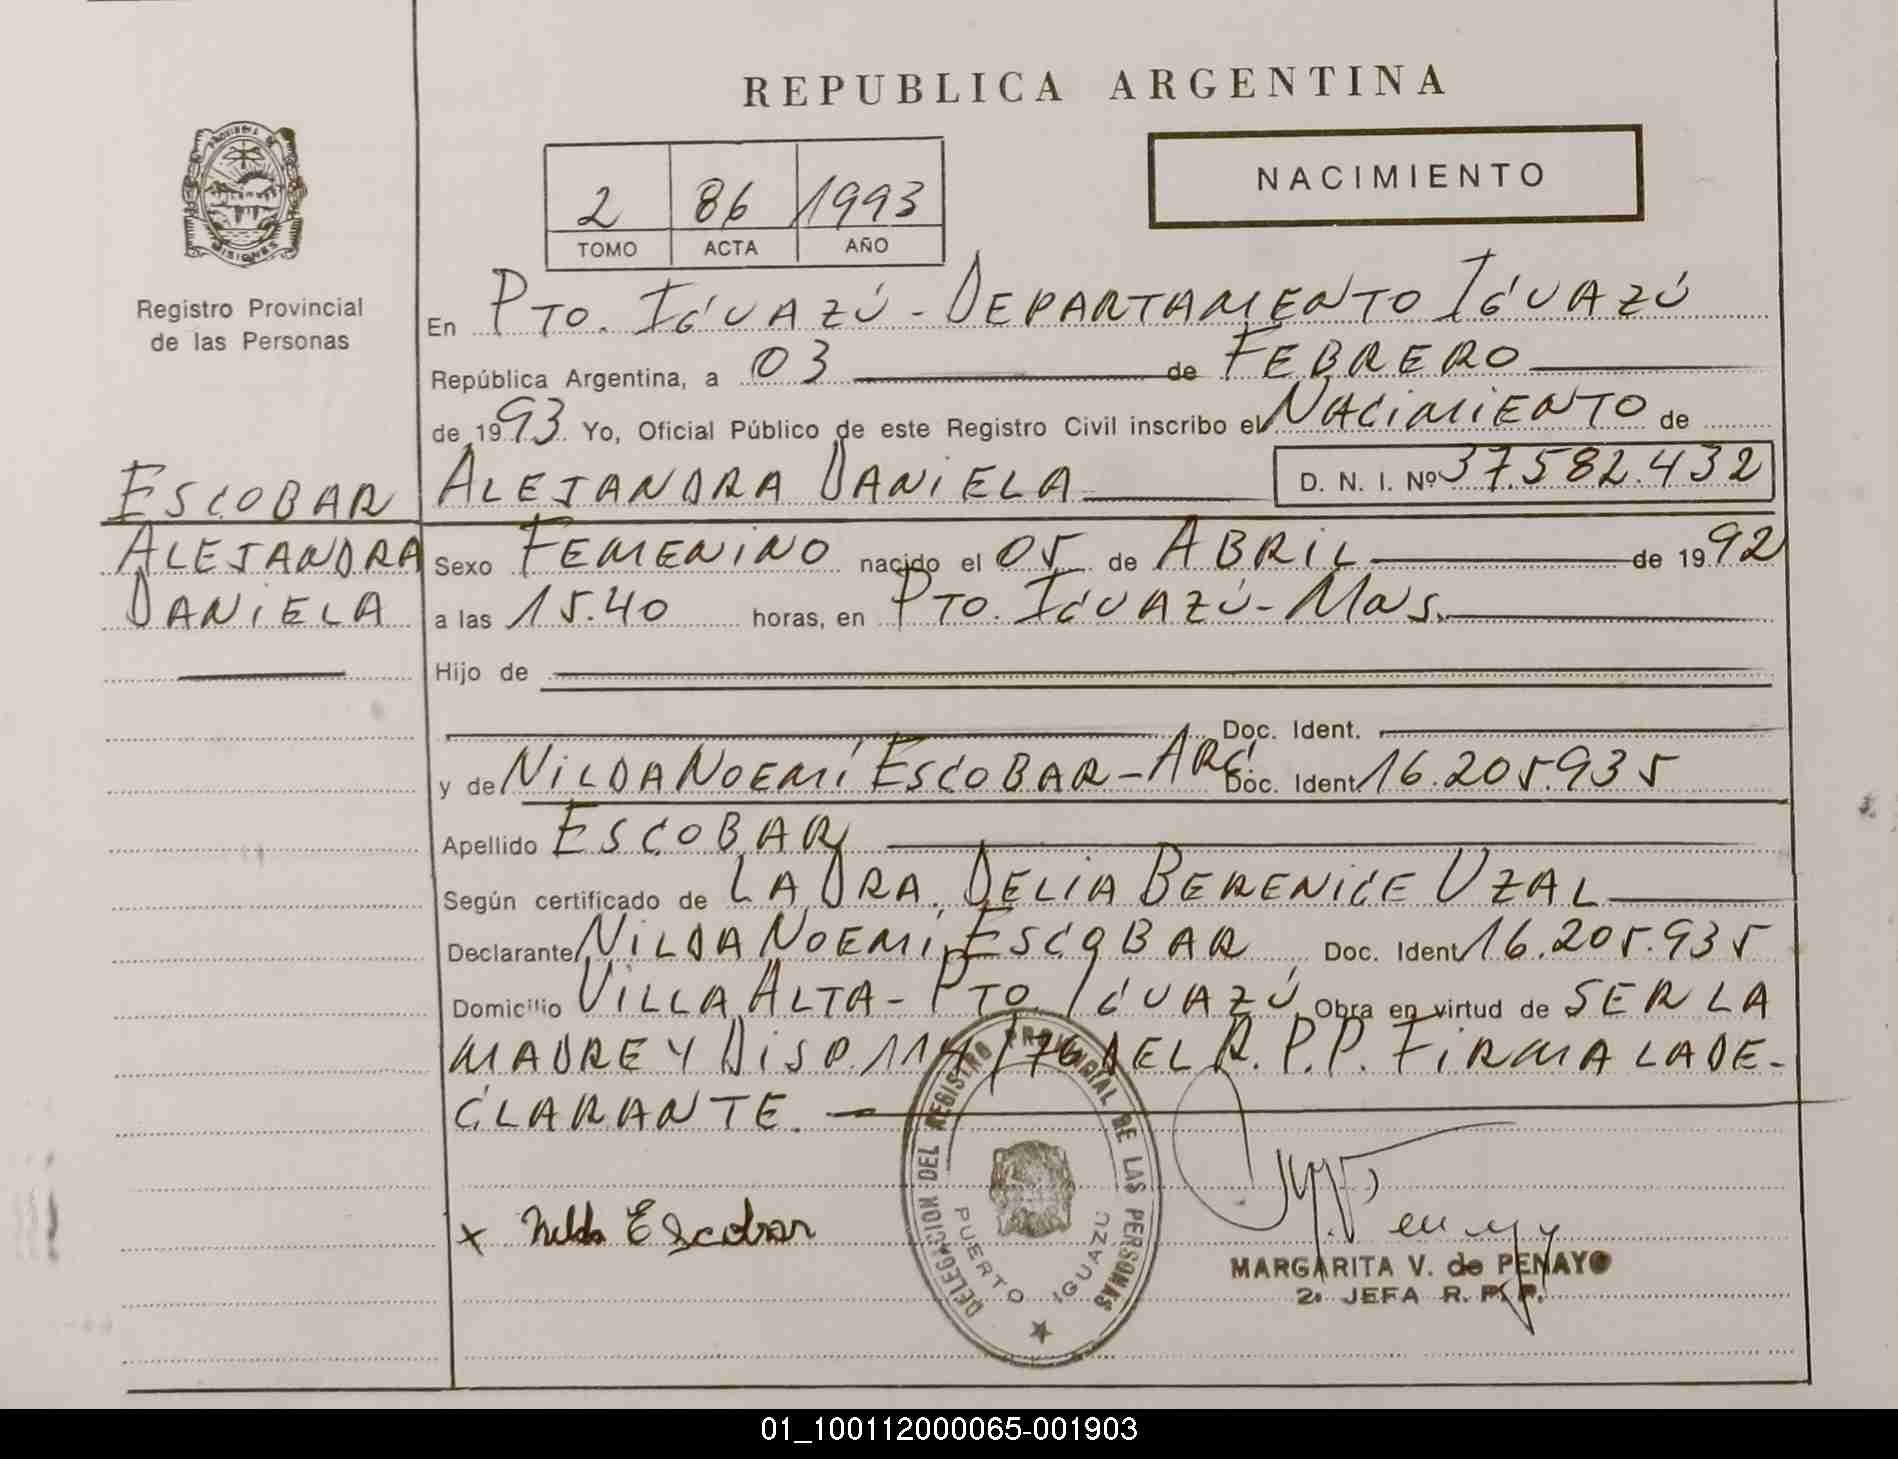 REPUBLICA ARGENTINA
NACIMIENTO
2 86 1993
TOMO ACTA AÑO
PROVINCIA DE MISIONES
Registro Provincial
de las Personas
En PTO. IGUAZÚ - DEPARTAMENTO IGUAZÚ
República Argentina, a 03 de FEBRERO
de 1993 Yo, Oficial Público de este Registro Civil inscribo el NACIMIENTO de
ALEJANDRA DANIELA D. N. I. Nº 37.582.432
ESCOBAR
ALEJANDRA
DANIELA
Sexo FEMENINO nacido el 05 de ABRIL de 1992
a las 15.40 horas, en PTO. IGUAZÚ - Mns.
Hijo de
Doc. Ident.
y de NILDA NOEMÍ ESCOBAR - ARG. Doc. Ident. 16.205.935
Apellido ESCOBAR
Según certificado de LA DRA. DELIA BERENICE UZAL
Declarante NILDA NOEMI ESCOBAR Doc. Ident 16.205.935
Domicilio VILLA ALTA - PTO IGUAZÚ, Obra en virtud de SER LA
MADRE Y DISP. 114/76 DEL R.P.P. FIRMA LA DE-
CLARANTE.
x Nilda Escobar
DELEGACION DEL REGISTRO PROVINCIAL DE LAS PERSONAS
PUERTO IGUAZU
MARGARITA V. de PENAYO
2ª JEFA R. P. P.
01_100112000065-001903